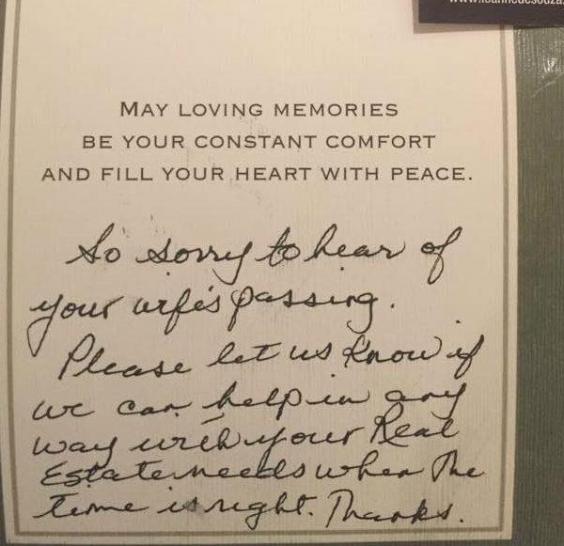 MAY LOVING MEMORIES
BE YOUR CONSTANT COMFORT
AND FILL YOUR HEART WITH PEACE.
So sorry to hear of
your wife's passing.
Please let us know if
we can help in any
way with your Real
Estate needs when the
time is right. Thanks.